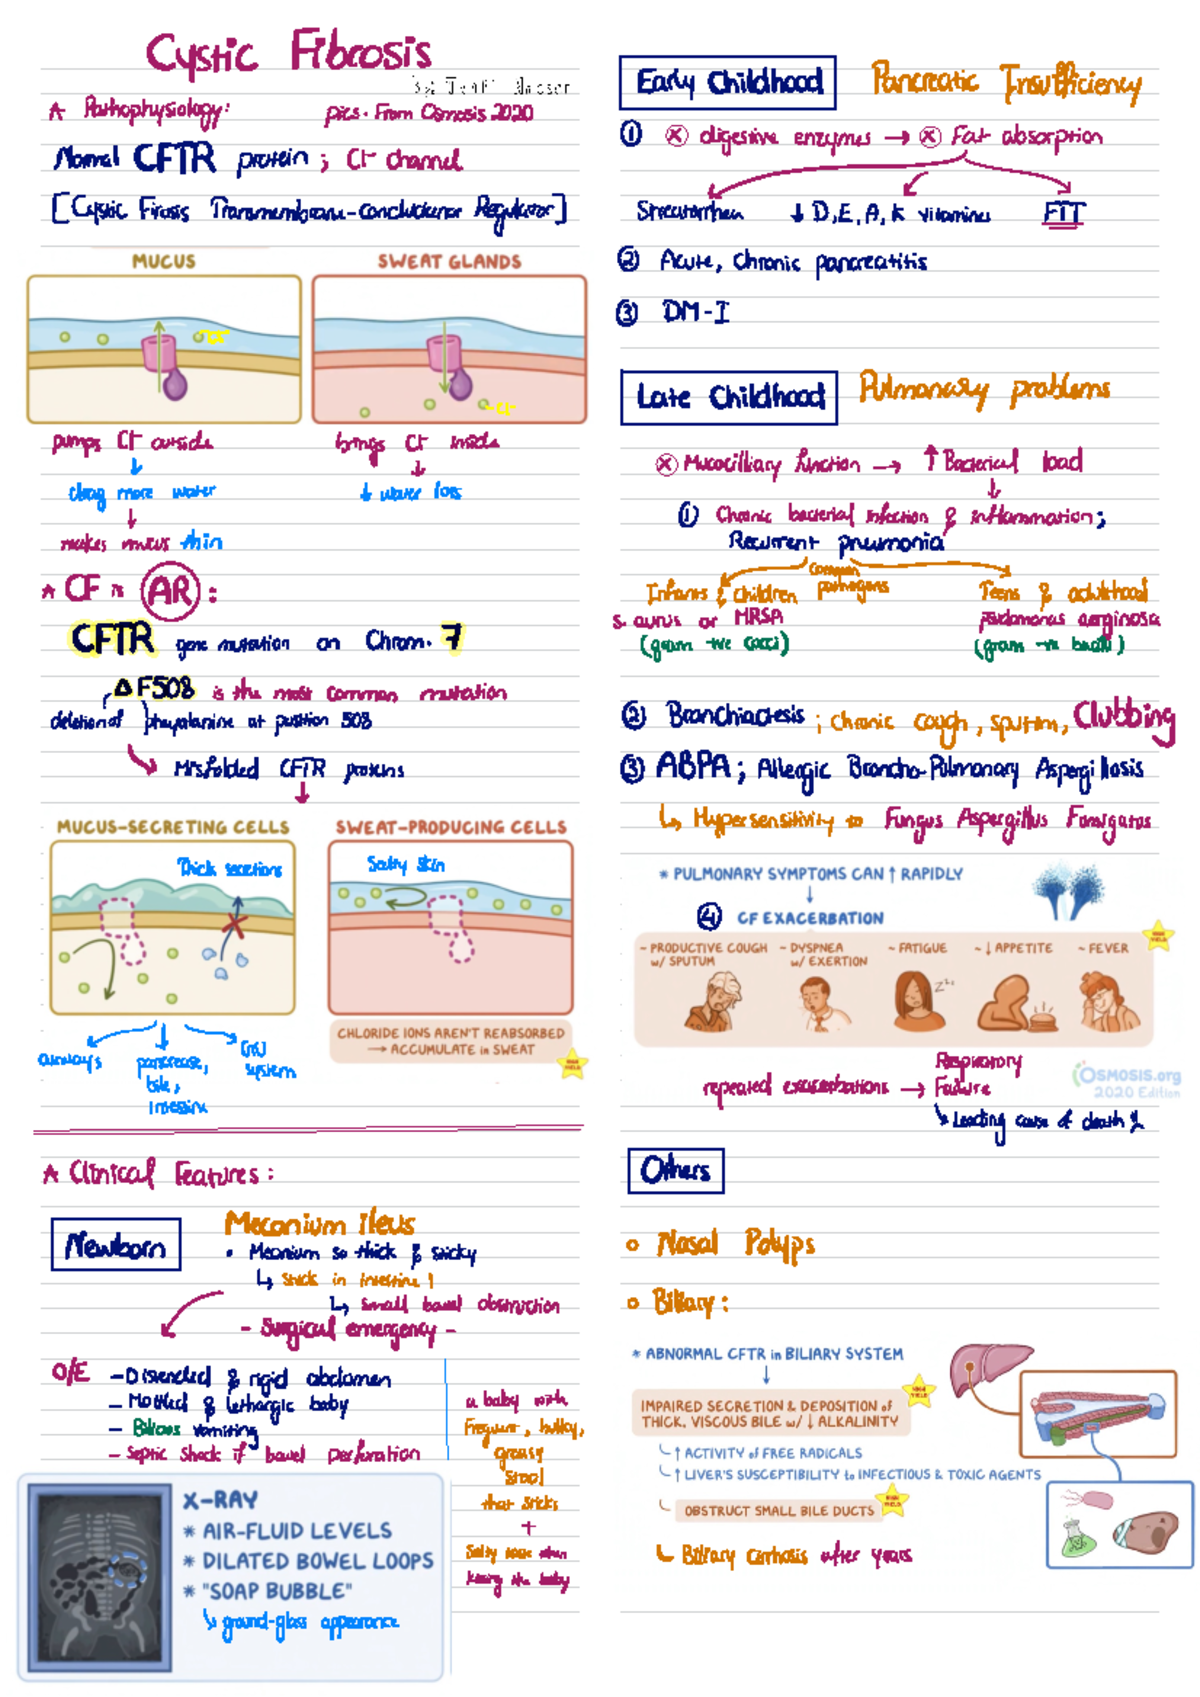 Cystic Fibrosis
pics. From Osmosis 2020
Pathophysiology:
Normal CFTR protein ; Cl- channel
[Cystic Firosis Transmembrane-conductance Regulator]
MUCUS
SWEAT GLANDS
Cl-
Cl-
pumps Cl- outside
↓
drag more water
↓
makes mucus thin
brings Cl- inside
↓
↓ water loss
* CF is AR :
CFTR gene mutation on Chrom. 7
ΔF508 is the most common mutation
deletion of phenylalanine at position 508
Misfolded CFTR proteins
↓
MUCUS-SECRETING CELLS
Thick secretions
SWEAT-PRODUCING CELLS
Salty skin
CHLORIDE IONS AREN'T REABSORBED
→ ACCUMULATE in SWEAT
HIGH YIELD
airways
pancrease,
bile,
intestine
system
* Clinical Features :
Newborn
Meconium Ileus
• Meconium so thick & sticky
↳ stick in intestine !
↳ small bowel obstruction
- Surgical emergency -
O/E
- Distended & rigid abdomen
- Mottled & lethargic baby
- Bilious vomiting
- Septic shock if bowel perforation
a baby with
Frequent, bulky,
greasy
stool
that sticks
+
Salty taste when
kissing the baby
X-RAY
* AIR-FLUID LEVELS
* DILATED BOWEL LOOPS
* "SOAP BUBBLE"
↳ ground-glass appearance
Early Childhood
Pancreatic Insufficiency
① ⓧ digestive enzymes → ⓧ Fat absorption
Steatorrhea
↓ D, E, A, K vitamins
FTT
② Acute, Chronic pancreatitis
③ DM-I
Late Childhood
Pulmonary problems
ⓧ Mucociliary function → ↑ Bacterial load
↓
① Chronic bacterial infection & inflammation;
Recurrent pneumonia
Common
pathogens
Infants & Children
S. aurus or MRSA
(gram +ve cocci)
Teens & adulthood
(gram -ve bacilli)
② Bronchiactesis ; Chronic cough, sputum, Clubbing
③ ABPA ; Allergic Broncho-Pulmonary Aspergillosis
↳ Hypersensitivity to Fungus Aspergillus Fumigatus
* PULMONARY SYMPTOMS CAN ↑ RAPIDLY
↓
④ CF EXACERBATION
HIGH YIELD
~ PRODUCTIVE COUGH
w/ SPUTUM
~ DYSPNEA
w/ EXERTION
~ FATIGUE
~ ↓ APPETITE
~ FEVER
Zzz
repeated exacerbations → Respiratory
Failure
↳ Leading cause of death
OSMOSIS.org
2020 Edition
Others
○ Nasal Polyps
○ Biliary :
* ABNORMAL CFTR in BILIARY SYSTEM
↓
HIGH YIELD
IMPAIRED SECRETION & DEPOSITION of
THICK, VISCOUS BILE w/ ↓ ALKALINITY
↑ ACTIVITY of FREE RADICALS
↑ LIVER'S SUSCEPTIBILITY to INFECTIOUS & TOXIC AGENTS
OBSTRUCT SMALL BILE DUCTS
HIGH YIELD
↳ Biliary cirrhosis after years